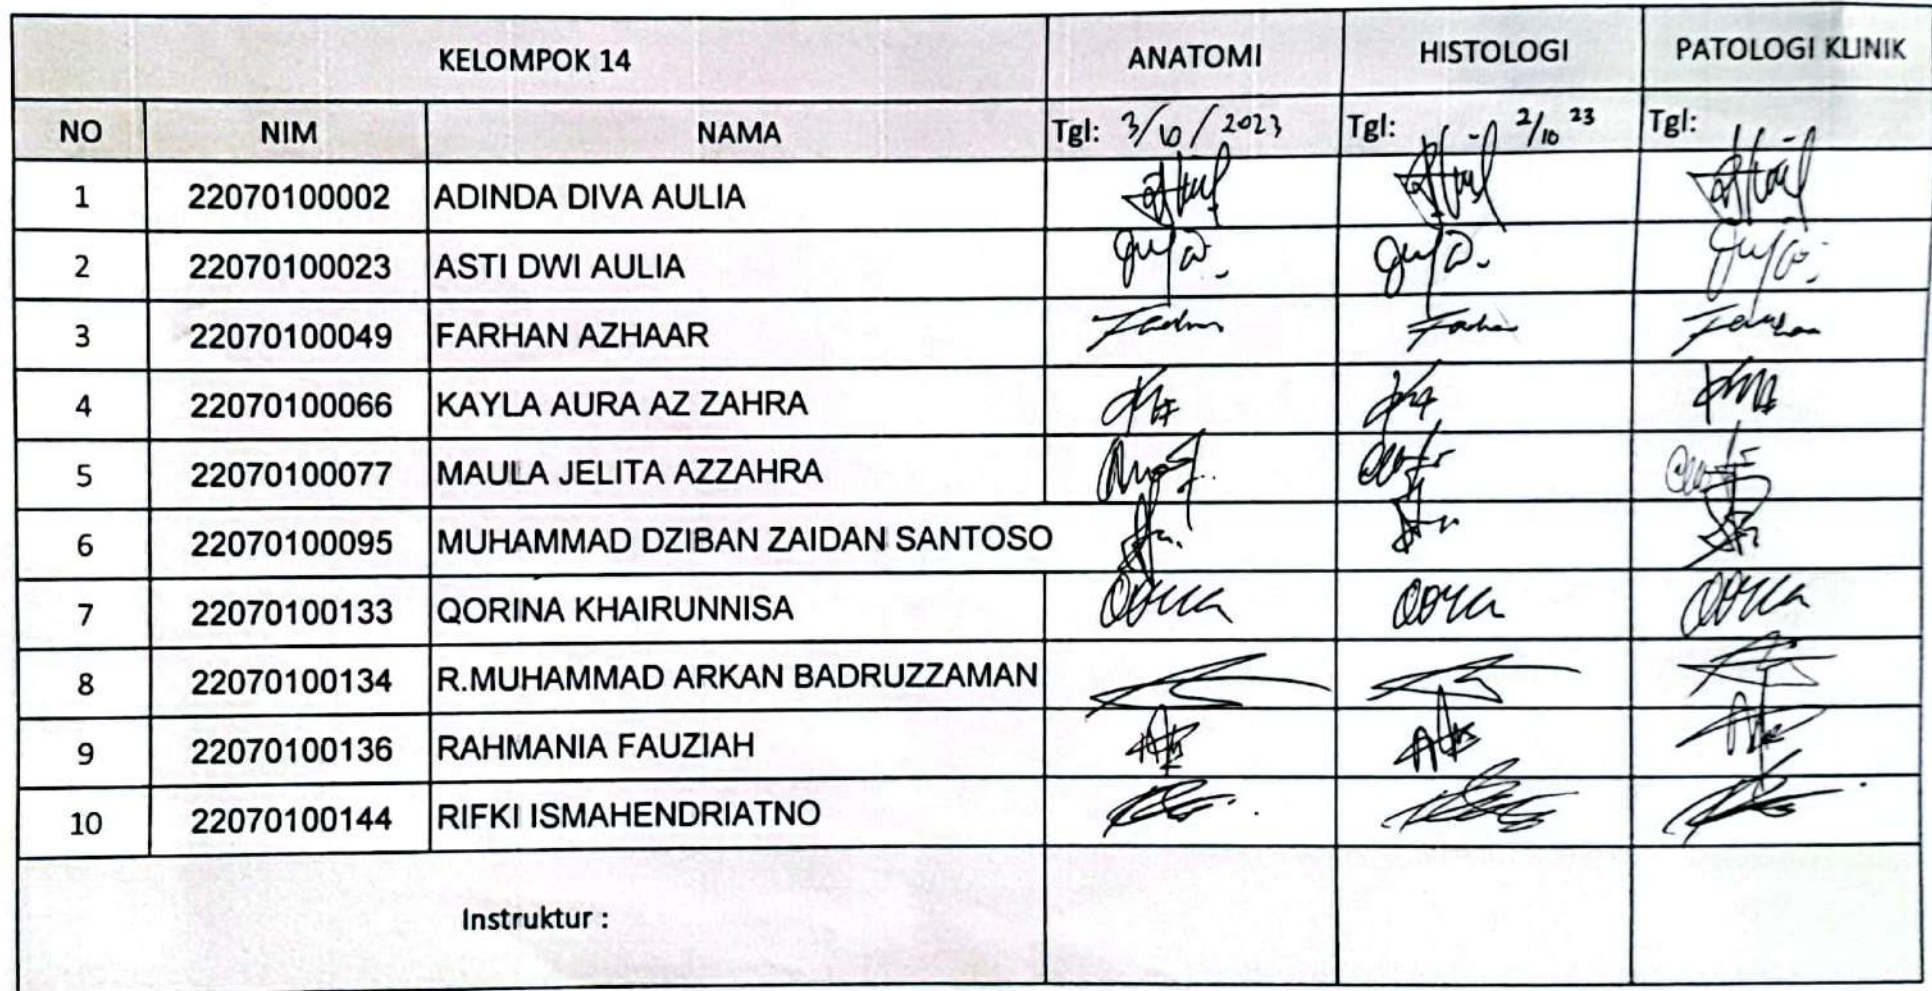 KELOMPOK 14 ANATOMI HISTOLOGI PATOLOGI KLINIK
NO NIM NAMA Tgl: 3/10/2023 Tgl: 2/10 23 Tgl:
1 22070100002 ADINDA DIVA AULIA
2 22070100023 ASTI DWI AULIA
3 22070100049 FARHAN AZHAAR
4 22070100066 KAYLA AURA AZ ZAHRA
5 22070100077 MAULA JELITA AZZAHRA
6 22070100095 MUHAMMAD DZIBAN ZAIDAN SANTOSO
7 22070100133 QORINA KHAIRUNNISA
8 22070100134 R.MUHAMMAD ARKAN BADRUZZAMAN
9 22070100136 RAHMANIA FAUZIAH
10 22070100144 RIFKI ISMAHENDRIATNO
Instruktur :